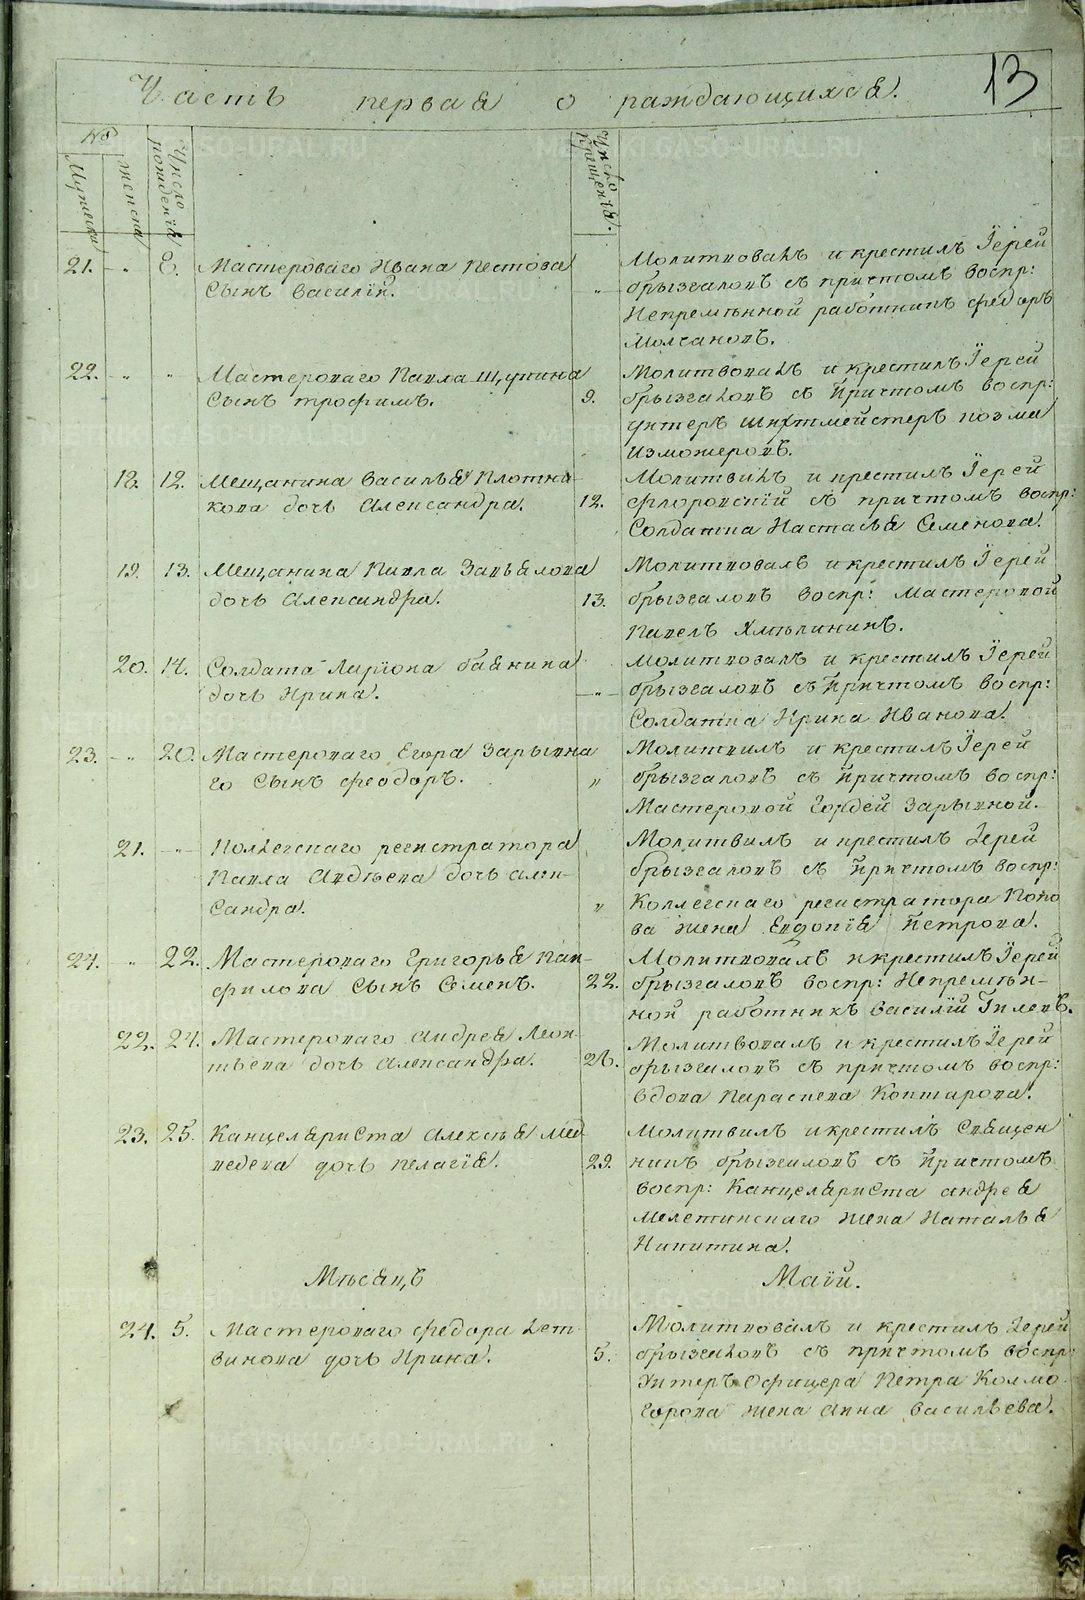 13
Часть первая о раждающихся.
№
Мужеска
женска
Число рождения
Число крещения.
21. - „ 8. Мастероваго Ивана Пестова
сынъ Василій.
„ Молитвовалъ и крестилъ Іерей
брызгаловъ съ притчомъ воспр:
Непремѣнной работникъ федоръ
Молчановъ.
22. - „ „ Мастероваго Павла Щукина
сынъ трофимъ.
9. Молитвовалъ и крестилъ Іерей
брызгаловъ съ притчомъ воспр:
унтеръ шихтмейстеръ козма
Изможеровъ.
18. 12. Мещанина василья Плотни-
кова дочь Александра.
12. Молитвилъ и крестилъ Іерей
флоровскій съ притчомъ воспр:
Солдатка Настасья Семенова.
19. 13. Мещанина Павла Завьялова
дочь Александра.
13. Молитвовалъ и крестилъ Іерей
брызгаловъ воспр: Мастеровой
Павелъ Хмѣлининъ.
20. 14. Солдата Ларіона баянина
дочь Ирина.
- „ - Молитвовалъ и крестилъ Іерей
брызгаловъ съ притчомъ воспр:
Солдатка Ирина Иванова.
23. - „ 20. Мастероваго Егора Зарывна
го сынъ феодоръ.
„ Молитвилъ и крестилъ Іерей
брызгаловъ съ притчомъ воспр:
Мастеровой Гордей Зарывной.
21. - „ - Коллегскаго регистратора
Павла Авдѣева дочь алек-
сандра.
„ Молитвилъ и крестилъ Іерей
брызгаловъ съ притчомъ воспр:
Коллегскаго регистратора Попо
ва жена Евдокія Петрова.
24. „ 22. Мастероваго Григорья Пан-
филова сынъ Семенъ.
22. Молитвовалъ и крестилъ Іерей
брызгаловъ воспр: Непремѣн-
ной работникъ василій Гилевъ.
22. 24. Мастероваго андрея Леон-
тьева дочь Александра.
26. Молитвовалъ и крестилъ Іерей
брызгаловъ съ притчомъ воспр:
вдова Параскева Контарова.
23. 25. Канцеляриста Алексѣя Мед
ведева дочь пелагія.
29. Молитвилъ и крестилъ Священ
никъ брызгаловъ съ притчомъ
воспр: Канцеляриста андрея
Мелетинскаго жена Наталья
Никитина.
Мѣсяцъ Маій.
24. 5. Мастероваго федора Лет
винова дочь Ирина.
5. Молитвовалъ и крестилъ Іерей
брызгаловъ съ притчомъ воспр:
Унтеръ Офицера Петра Колмо
горова жена анна васильева.